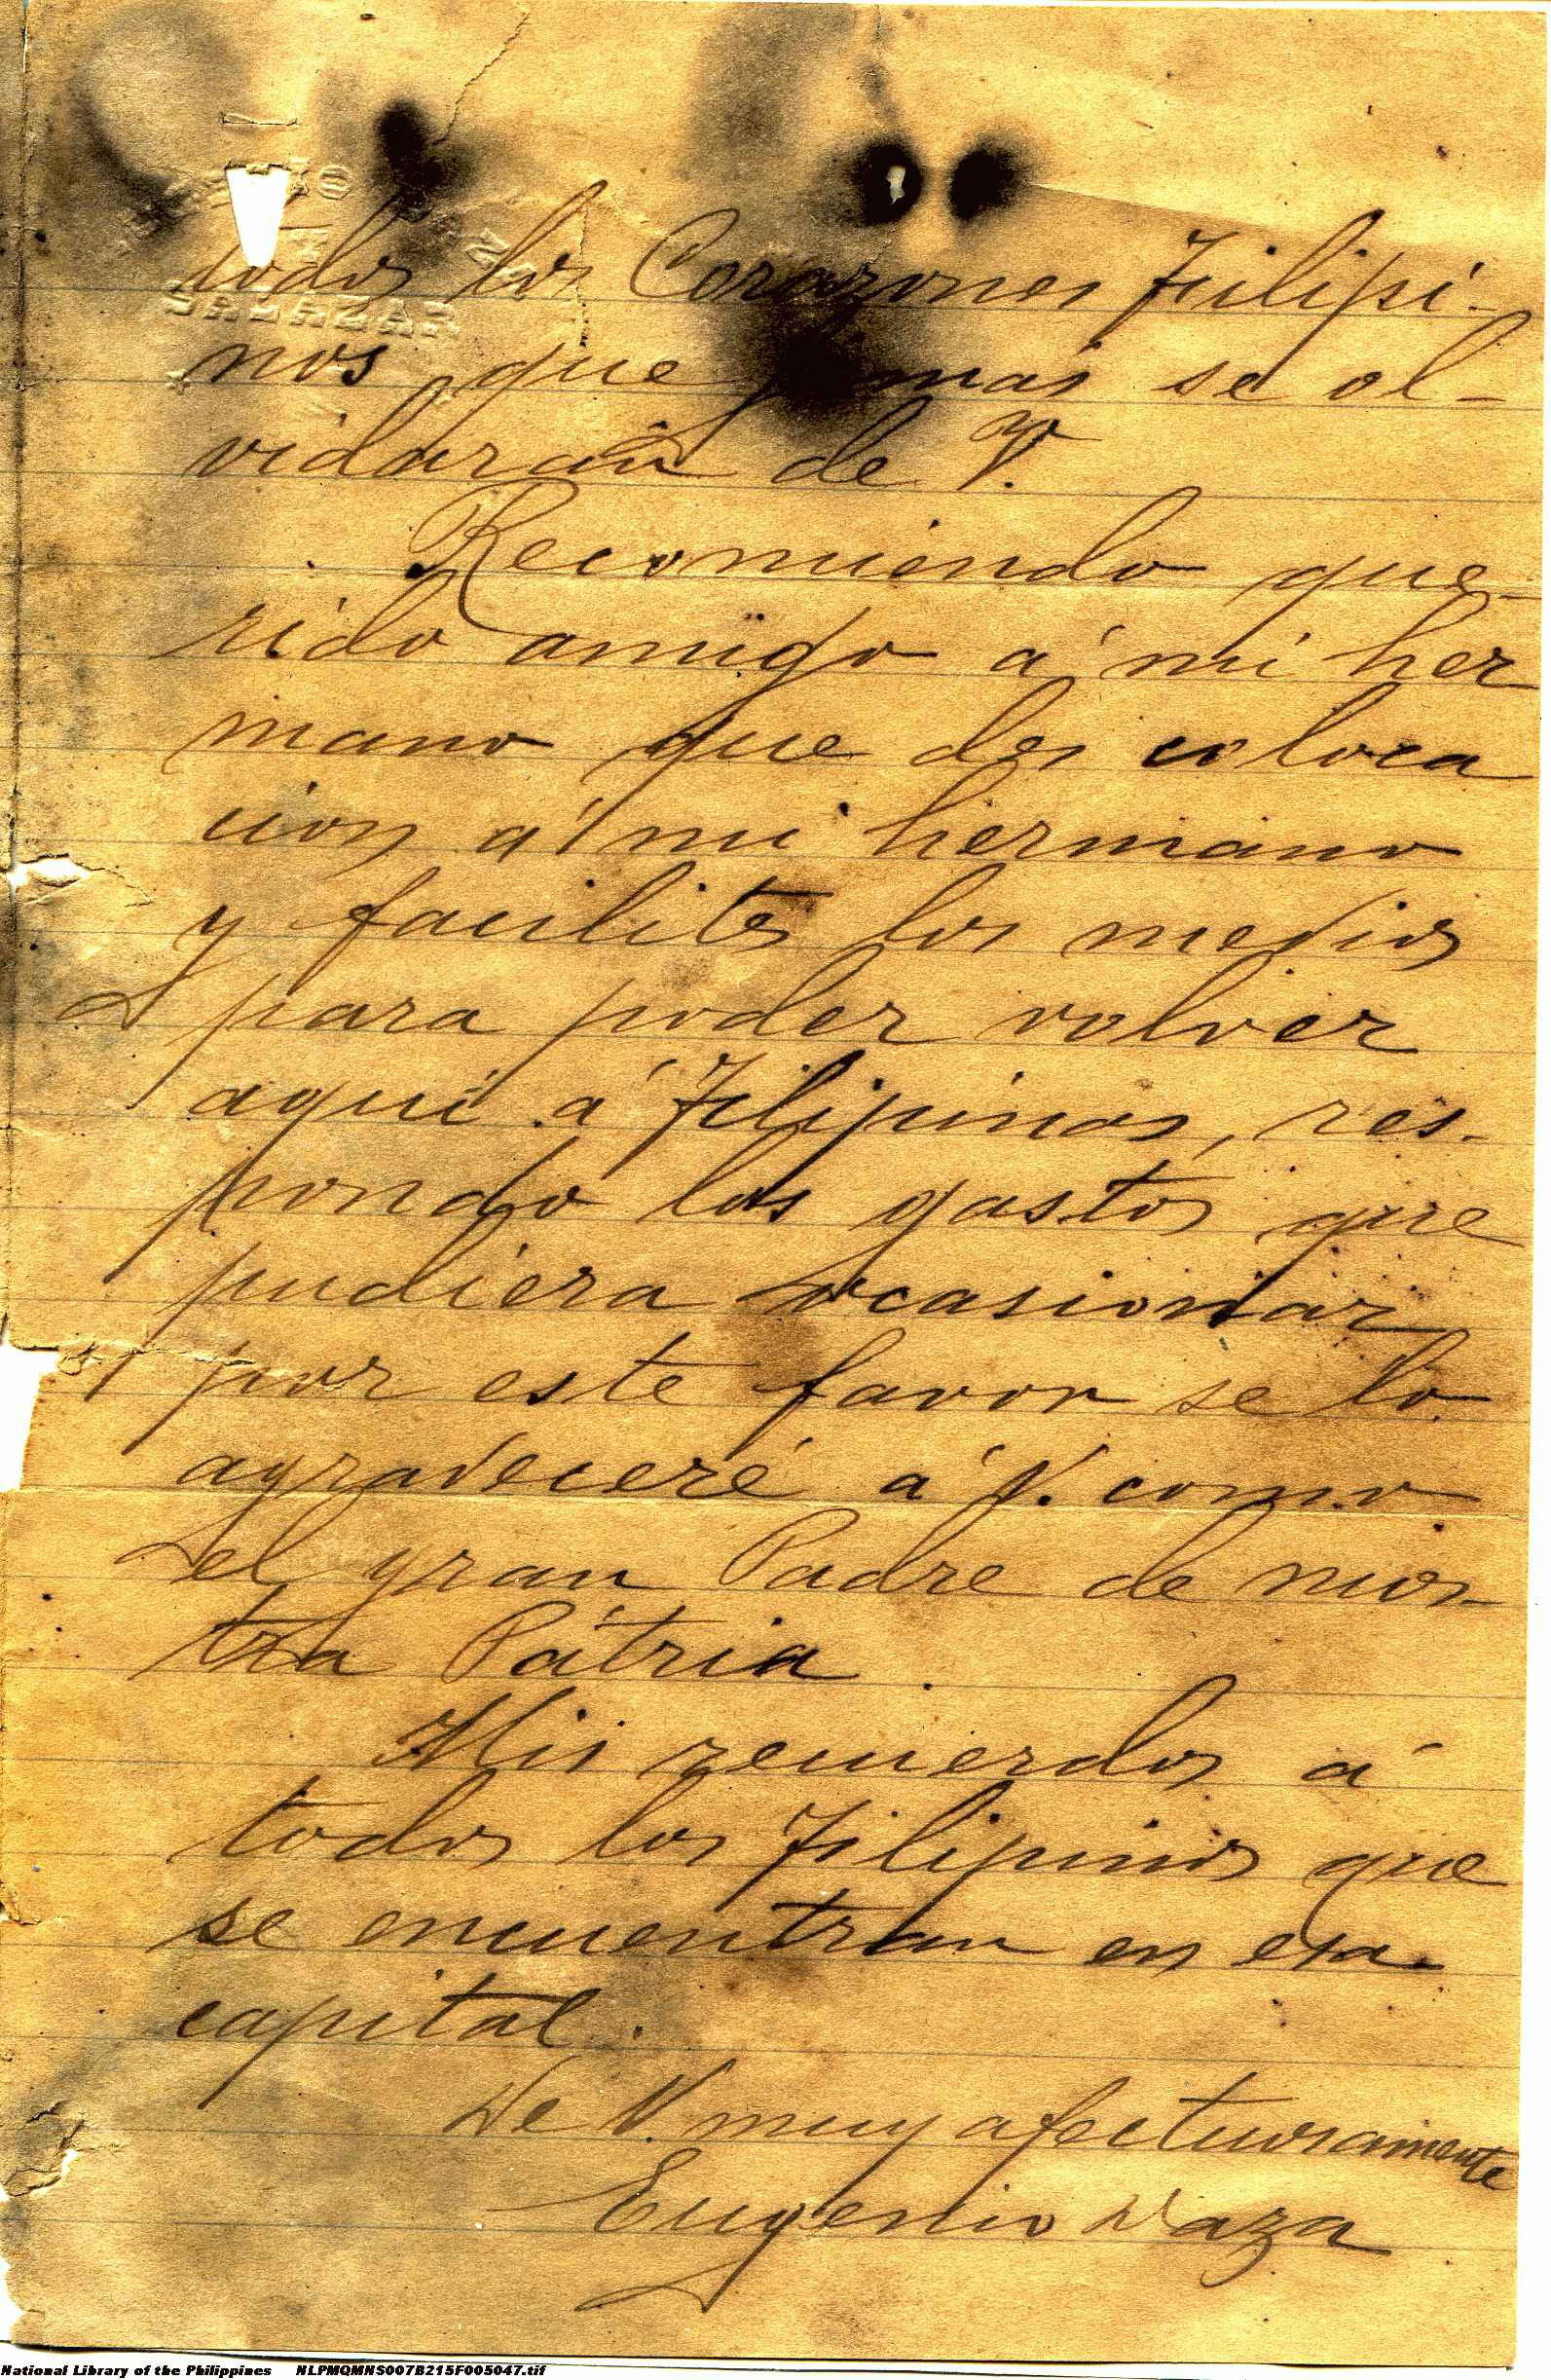 SALAZAR
todos los Corazones Filipi-
nos que jamás se ol-
vidarán de V.
Recomiendo que-
rido amigo á mi her
mano que des coloca
cion á mi hermano
y facilites los medios
para poder volver
aqui á Filipinas, res-
pondo los gastos que
pudiera ocasionar
por este favor se lo
agradeceré á V. como
el gran Padre de nues-
tra Pátria
Mis recuerdos á
todos los Filipinos que
se encuentran en esa
capital.
De V. muy afectuosamente
Eugenio Daza
National Library of the Philippines NLPMQMNS007B215F005047.tif